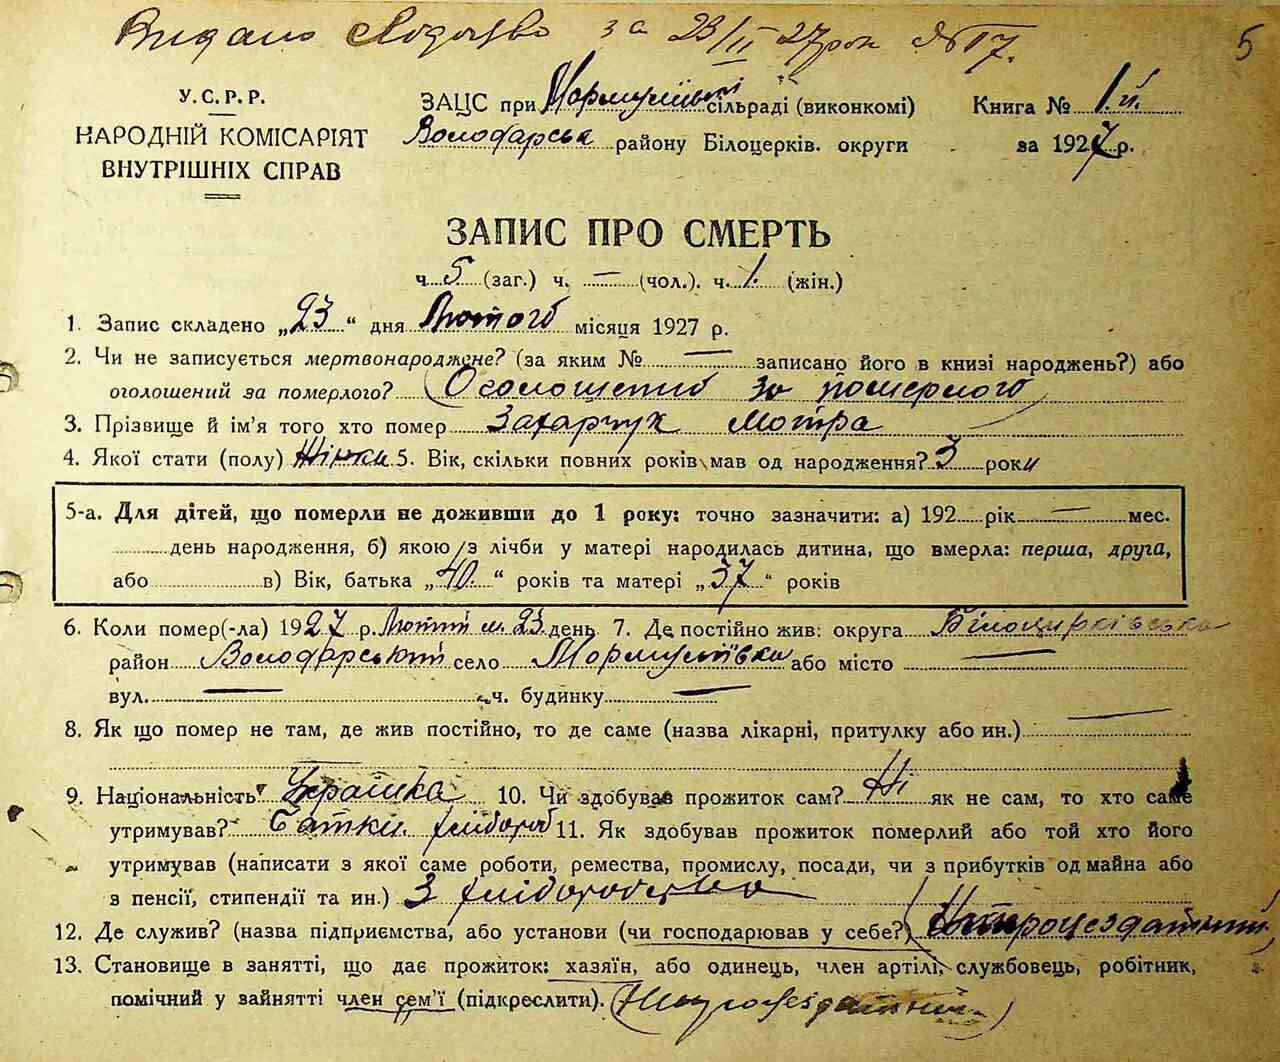 Видано Свідоцтво за 23/II 27 рок № 17. 5
У.С.Р.Р.
НАРОДНІЙ КОМІСАРІЯТ
ВНУТРІШНІХ СПРАВ
ЗАЦС при сільраді (виконкомі) Книга № 1.й.
Володарська району Білоцерків. округи за 1927 р.
ЗАПИС ПРО СМЕРТЬ
ч. 5 (заг.) ч. — (чол.). ч. 1. (жін.)
1. Запис складено „23“ дня Лютого місяця 1927 р.
2. Чи не записується мертвонароджене? (за яким № — записано його в книзі народжень?) або
оголошений за померлого? (Оголошений за померлого)
3. Прізвище й ім'я того хто помер Захарчук Мотра
4. Якої стати (полу) Жінка 5. Вік, скільки повних років мав од народження? 3 роки
5-а. Для дітей, що померли не доживши до 1 року: точно зазначити: а) 192 рік — мес.
день народження, б) якою з лічби у матері народилась дитина, що вмерла: перша, друга,
або в) Вік, батька „40.“ років та матері „37“ років
6. Коли помер(-ла) 1927 р. Лютий м. 23 день 7. Де постійно жив: округа Білоцирківська
район Володарський село або місто —
вул. — ч. будинку —
8. Як що помер не там, де жив постійно, то де саме (назва лікарні, притулку або ин.) —
9. Національність Українка 10. Чи здобував прожиток сам? Ні як не сам, то хто саме
утримував? Батки хлібороб 11. Як здобував прожиток померлий або той хто його
утримував (написати з якої саме роботи, ремества, промислу, посади, чи з прибутків од майна або
з пенсії, стипендії та ин.) З хліборобства
12. Де служив? (назва підприємства, або установи (чи господарював у себе?)
13. Становище в занятті, що дає прожиток: хазяїн, або одинець, член артілі, службовець, робітник,
помічний у зайнятті член сем'ї (підкреслити).